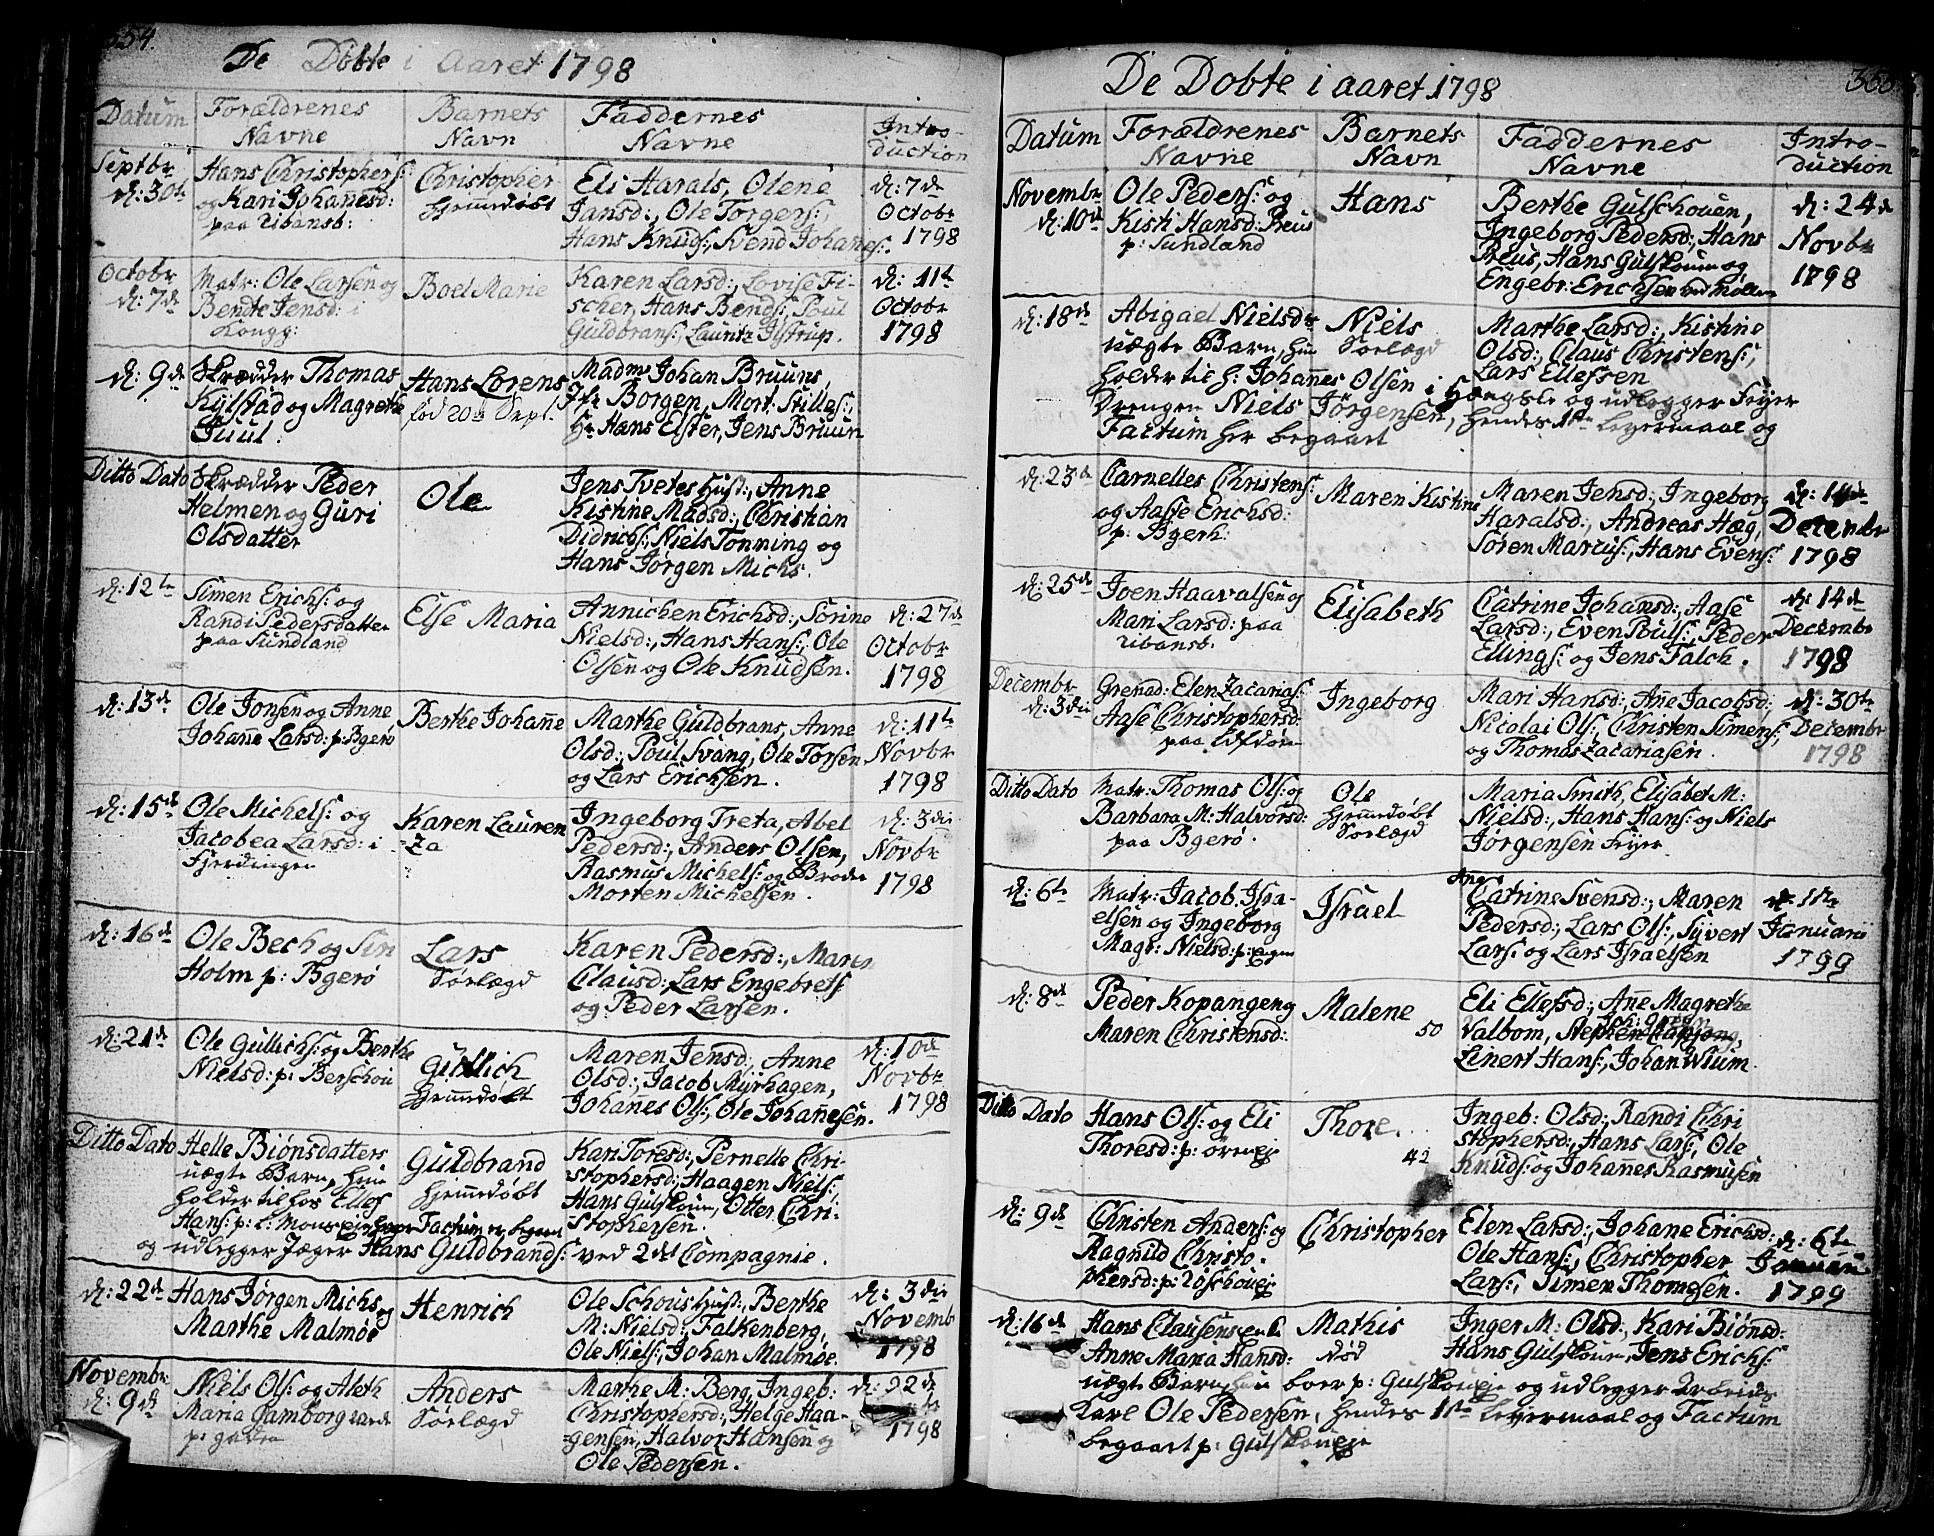 354.
De Döbte i Aaret 1798
Datum
Forældrenes
Navne
Barnets
Navn
Faddernes
Navne
Intro-
duction
Septbr
d: 30te
Hans Christophers:
og Kari Johañesd:
paa
Christopher
Hjemmdøbt
Eli Harals, Olene
Jansd:, Ole Torgers:,
Hans Knuds:, Svend Johañes:.
d: 7de
Octobr
1798
Octobr
d: 7de
Matr: Ole Larsen og
Bendte Jensd: i
Kongg:
Boel Marie
Karen Larsd:, Lovise Fi-
scher, Hans Bends:, Poul
Guldbrans:, Lauritz Istrup.
d: 11te
Octobr
1798
d: 9de
Skrædder Thomas
Kylstad og Magrethe
Juul.
Hans Lorens
fød 20de Sept.
Madm Johan Bruuns,
Jfr Borgen, Mort: Stilles:,
Hr Hans Elster, Jens Bruun
Ditto Dato
Skrædder Peder
Helmen og Guri
Olsdatter
Ole
Jens Tvetes Hust:, Anne
Kistine Madsd:, Christian
Didrichs:, Niels Tonning og
Hans Jørgen Michs.
d: 12te
Simen Erichs: og
Randi Pedersdatter
paa Sundland
Else Maria
Annichen Erichsd:, Sorine
Nielsd:, Hans Hans:, Ole
Olsen og Ole Knudsen.
d: 27de
Octobr
1798
d: 13de
Ole Jonsen og Anne
Johañe Larsd: p: Bgerø
Berthe Johañe
Marthe Guldbrans, Anne
Olsd:, Poul Svang, Ole Torsen
og Lars Erichsen.
d: 11te
Novbr
1798
d: 15de
Ole Michels: og
Jacobea Larsd: i
Fjerdingen
Karen Lauren
-za
Ingeborg Treta, Abel
Pedersd:, Anders Olsen,
Rasmus Michels: og Broder
Morten Michelsen.
d: 3die
Novbr
1798
d: 16de
Ole Bech og Siri
Holm p: Bgerø
Lars
Sørlægd
Karen Pedersd:, Maren
Clausd:, Lars Engebrets:
og Peder Larsen.
d: 21de
Ole Gullichs: og Berthe
Nielsd: p: Berschou
Gullich
Hjemmdøbt
Maren Jensd:, Anne
Olsd:, Jacob Mürhagen,
Johañes Ols:, Ole Johañesen.
d: 10de
Novbr
1798
Ditto Dato
Helle Biönsdatters
uægte Barn, hun
holder til hos Ellef
Hans: p:
og udlegger Jæger Hans Guldbrands: ved 2det Compagnie.
Guldbrand
Hjemmdøbt
Factum er begaaet
Kari Toresd:, Pernelle Chri-
stophersd:, Haagen Niels:,
Hans Gulskoun, Otter Chri-
stophersen.
d: 22de
Hans Jørgen Michs og
Marthe Malmöe
Henrich
Ole Schous Hust:, Berthe
M: Nielsd:, Falkenberg,
Ole Niels:, Johan Malmøe.
d: 3die
Novembr
1798
Novembr
d: 9de
Niels Ols: og Aleth
Maria Gamborg
Anders
Sørlægd
Marthe M: Berg, Ingeb:
Christophersd:, Helge Haa-
gensen, Halvor Hansen og
Ole Pedersen.
1798
355
De Dobte i aaret 1798
Datum
Forældrenes
Navne
Barnets
Navn
Faddernes
Navne
Intro-
duction
Novembr
d: 10de
Ole Peders: og
Kisti Hansd: Preus
p: Sundland
Hans
Berthe Gulschouen,
Ingeborg Pedersd:, Hans
Preus, Hans Gulskoun og
Engebr: Erichsen ved Møllen
d: 24de
Novbr
1798
d: 18de
Abigael Nielsdrs
uægte Barn, hun
holder til h: Johañes Olsen i Hængsle og udlegger Fejer
Drengen Niels Jørgensen, hendes 1ste leyermaal og
Factum her begaaet
Niels
Sørlægd
Marthe Larsd:, Kistine
Olsd:, Claus Christens:,
Lars Ellefsen
d: 23de
Carnelles Christens:
og Aasse Erichsd:
p: Bgerh:
Maren Kistine
Maren Jensd:, Ingeborg
Haralsd:, Andreas Høg,
Søren Marcus:, Hans Evens:
Decembr
1798
d: 25de
Joen Haavalsen og
Mari Larsd: paa
Elisabeth
Catrine Johansd:, Aase
Larsd:, Even Pouls:, Peder
Ellings: og Jens Falch.
d: 14de
Decembr
1798
Decembr
d: 3die
Grenad: Elen Zacarias:
Aase Christophersd:
paa
Ingeborg
Mari Hansd:, Añe Jacobsd:,
Nicolai Ols:, Christen Simens:,
og Thomas Zacariasen.
d: 30te
Decembr
1798
Ditto Dato
Matr: Thomas Ols: og
Barbara M: Halvorsd:
paa Bgerø.
Ole
Hjemmdøbt
Sørlægd
Maria Smith, Elisabet M:
Nielsd:, Hans Hans: og Niels
Jörgensen Fejer
d: 6te
Matr: Jacob Isra-
elsen og Ingeborg
Magr: Nielsd: p: Egen
Israel
Catrina Svensd:, Maren
Pedersd:, Lars Ols:, Syvert
Lars: og Lars Israelsen
d: 1ste
Januari
1799
d: 8de
Peder Kopangen og
Maren Christensd:
Malene
50
Eli Ellefsd:, Añe Magrethe
Valbom,
Linert Hans:, Johan Wium.
Ditto Dato
Hans Ols: og Eli
Thoresd: p: ørneje
Thore.
42
Ingeb: Olsd:, Randi Chri
stophersd:, Hans Lars:, Ole
Knuds: og Johañes Rasmusen
d: 9de
Christen Anders: og
Ragnild Christo-
phersd: p:
Christopher
Elen Larsd:, Johane Erichsd:
Ole Hans:, Christopher
Lars:, Simen Thomesen.
d: 6te
Januari
1799
d: 16de
Hans Clausens enke
Anne Maria Hansd:
uægte Barn, hun boer p: Gulskoueje og udlegger Arbeids
Karl Ole Pedersen, hendes 1ste leyermaal og Factum
begaaet p: Gulskoueje
Mathis
død
Inger M: Olsd:, Kari Biönsd:
Hans Gulskoun, Jens Erichs: